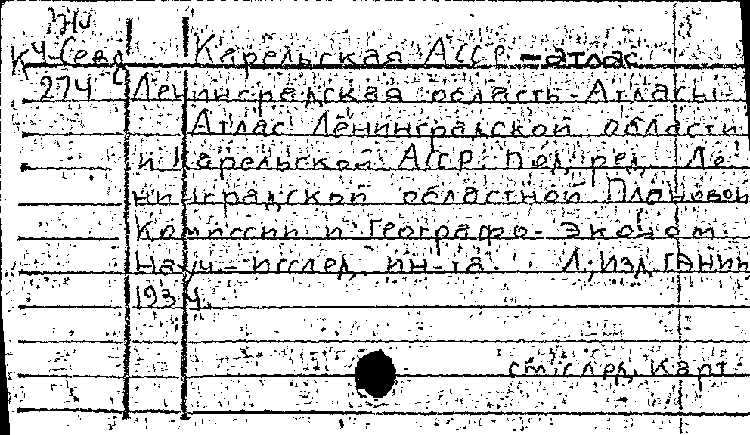 К Ч-Сев
274
Карельская АССР - атлас
Ленинградская область - Атласы
Атлас Ленинградской области
и Карельской АССР. Под ред. Ле-
нинградской областной Плановой
Комиссии и Географо-Эконом.
Науч.-исслед. ин-та. Л., изд. ГЭНИИ
1934.
см. след. карт.